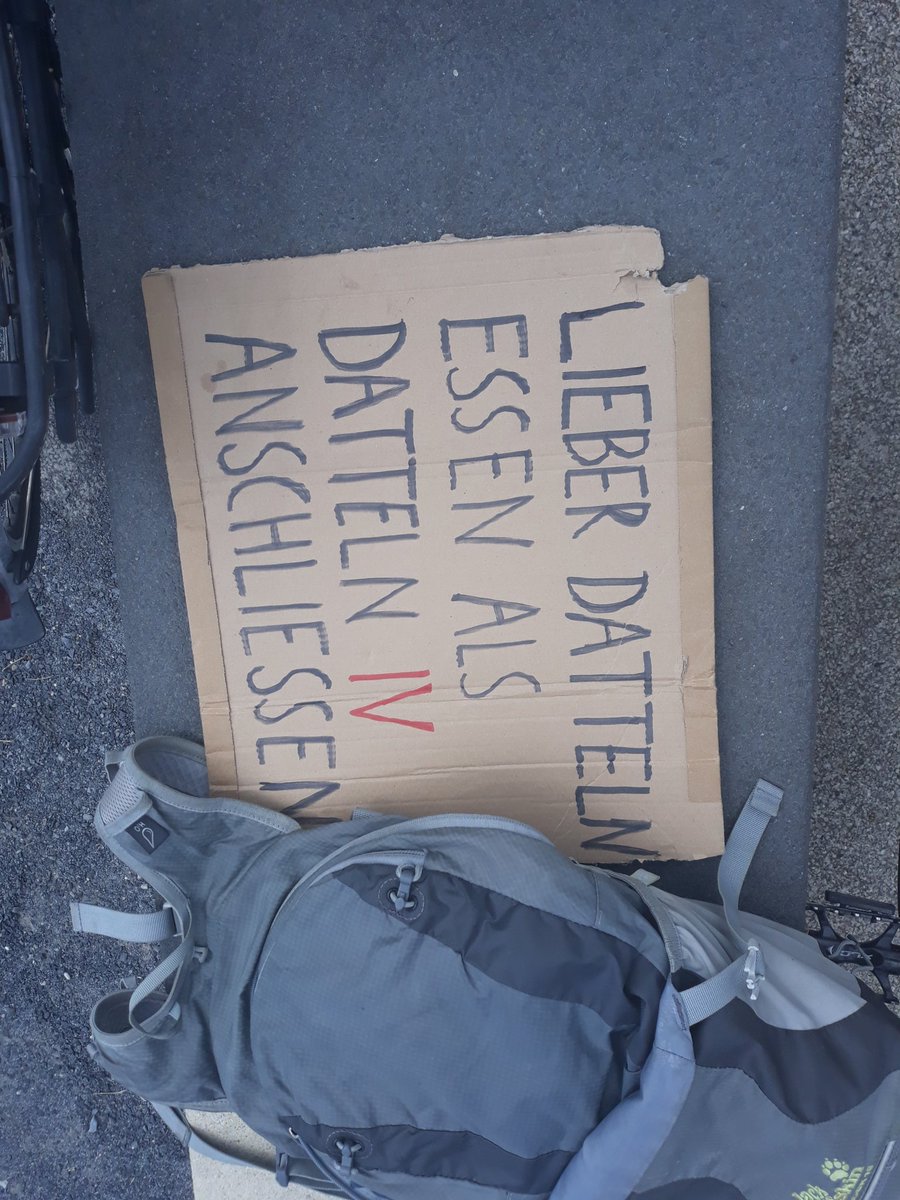 LIEBER DATTELN
ESSEN ALS
DATTELN IV
ANSCHLIESSEN